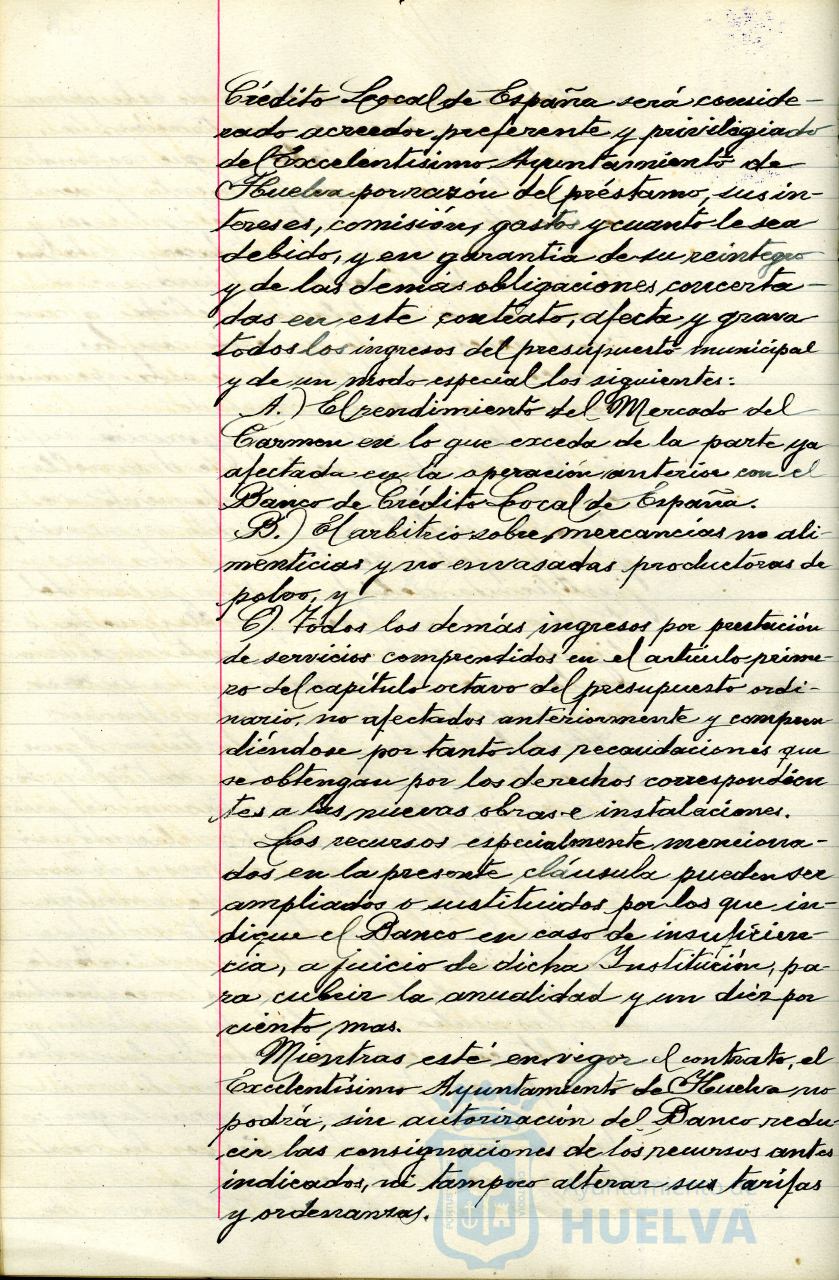 Crédito Local de España será conside-
rado acreedor preferente y privilegiado
del Excelentísimo Ayuntamiento de
Huelva por razón del préstamo, sus in-
tereses, comisión, gastos y cuanto le sea
debido, y en garantía de su reintegro
y de las demás obligaciones concerta-
das en este contrato, afecta y grava
todos los ingresos del presupuesto municipal
y de un modo especial los siguientes:
A.) El rendimiento del Mercado del
Carmen en lo que exceda de la parte ya
afectada en la operación anterior con el
Banco de Crédito Local de España.
B.) El arbitrio sobre mercancías no ali-
menticias y no envasadas productoras de
polvo, y
C). Todos los demás ingresos por prestación
de servicios comprendidos en el artículo prime-
ro del capítulo octavo del presupuesto ordi-
nario, no afectados anteriormente y compren
diéndose por tanto las recaudaciones que
se obtengan por los derechos correspondien
tes a las nuevas obras e instalaciones.
Los recursos especialmente menciona-
dos en la presente cláusula pueden ser
ampliados o sustituidos por los que in-
dique el Banco en caso de insuficien-
cia, a juicio de dicha Institución, pa-
ra cubrir la anualidad y un diez por
ciento, mas.
Mientras esté en vigor el contrato, el
Excelentísimo Ayuntamiento de Huelva no
podrá, sin autorización del Banco redu-
cir las consignaciones de los recursos antes
indicados, ni tampoco alterar sus tarifas
y ordenanzas.
Ayuntamiento de
HUELVA